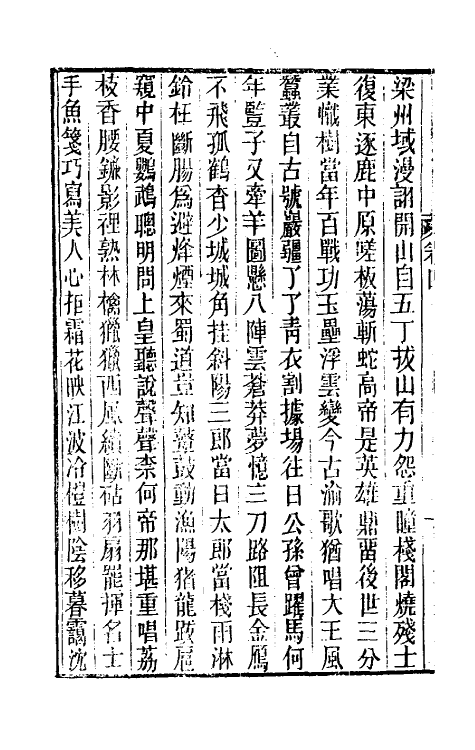 梁州域漫詡開山自五丁拔山有力怨重瞳棧閣燒殘士
復東逐鹿中原嗟板蕩斬蛇高帝是英雄鼎畱後世三分
業幟樹當年百戰功玉壘浮雲變今古渝歌猶唱大王風
蠶叢自古號巖疆了了靑衣割據場往日公孫曾躍馬何
年豎子又牽羊圖懸八陣雲蒼莽夢憶三刀路阻長金鴈
不飛孤鶴杳少城城角挂斜陽三郎當日太郎當棧雨淋
鈴枉斷腸爲避烽煙來蜀道豈知鼙鼓動漁陽猪龍跋扈
窺中夏鸚鵡聰明問上皇聽說聲聲柰何帝那堪重唱荔
枝香腰鐮影裡熟林檎獵獵西風續斷砧羽扇罷揮名士
手魚箋巧寫美人心拒霜花映江波冷榿樹陰移暮靄沈